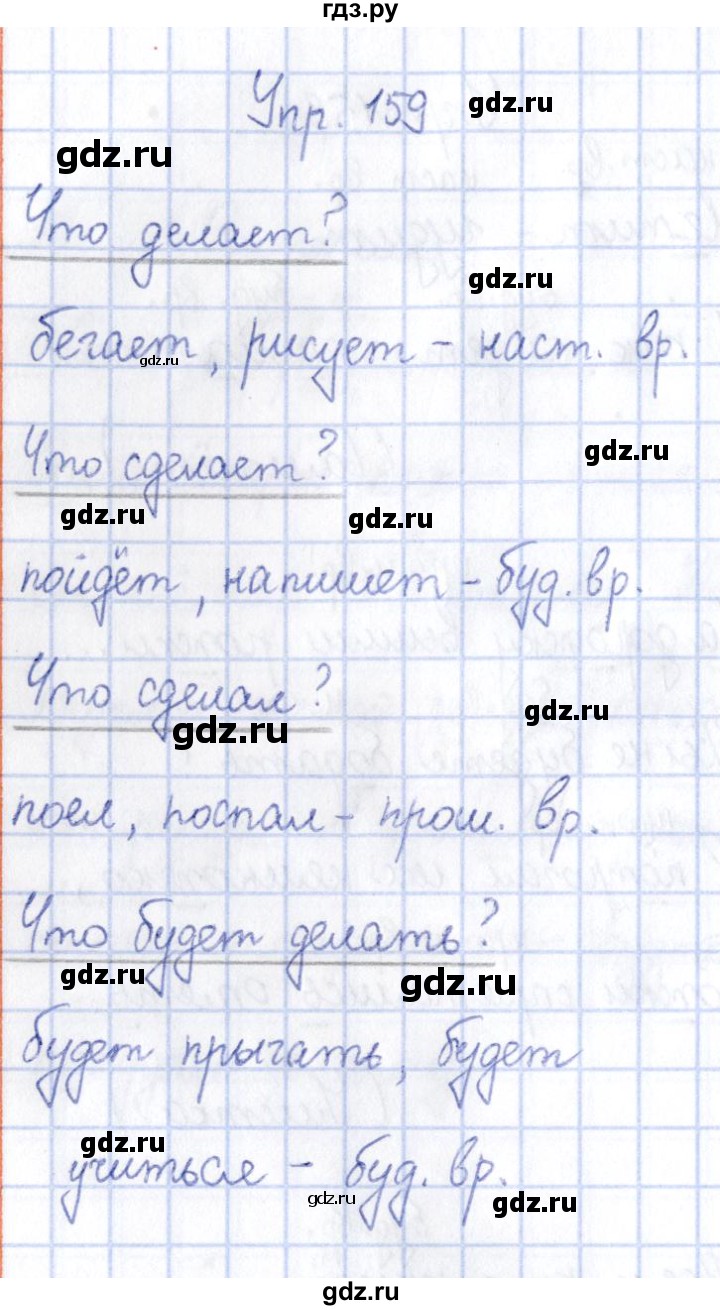 гдз.ру
Упр. 159
gdz.ru
gdz.ru
Что делает?
gdz.ru
бегает, рисует - наст. вр.
gdz.ru
Что сделает?
gdz.ru
gdz.ru
gdz.ru
пойдёт, напишет - буд. вр.
Что сделал?
gdz.ru
gdz.ru
поел, поспал - прош. вр.
Что будет делать?
gdz.ru
gdz.ru
будет прыгать, будет
gdz.ru
учиться - буд. вр.
gdz.ru
gdz.ru
gdz.ru